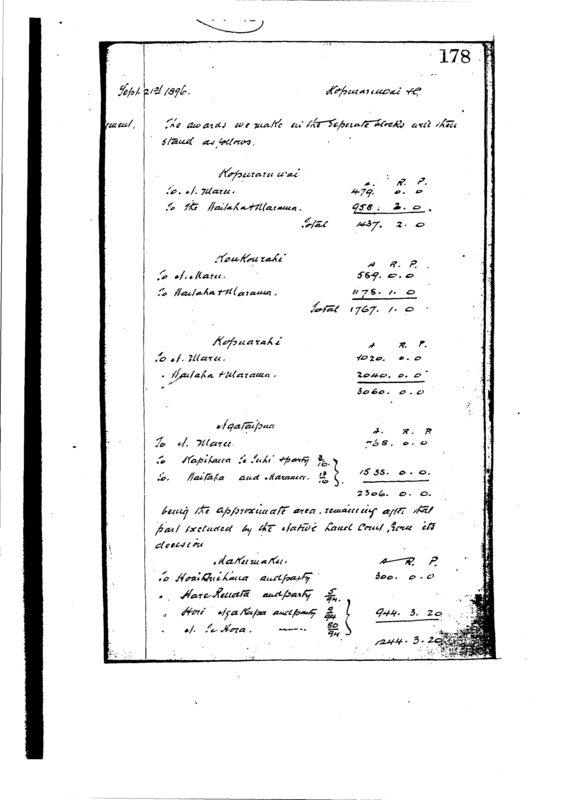 178
Sept 21st 1896. Kopuraruwai &c
ment. The awards we make in the seperate blocks will then
stand as follows.
Kopuraruwai
A. R. P.
To N. Maru. 479. 0. 0
To the Haitaha & Marama. 958. 2. 0.
Total 1437. 2. 0
Koukourahi
A R. P.
To N. Maru. 589. 0. 0
To Haitaha & Marama. 1178. 1. 0
Total 1767. 1. 0
Kopuarahi
A R. P.
To N. Maru. 1020. 0. 0
" Haitaha & Marama. 2040. 0. 0
3060. 0. 0
Ngataipua
A. R. P
To N. Maru 768. 0. 0
To Kapihana Te Tuhi & party
To. Haitaha and Marama. 1538. 0. 0.
2306. 0. 0.
being the approximate area, remaining after that
part excluded by the Native Land Court, from its
decision
Makumaku.
A R. P.
To Hori and party 300. 0. 0
" Hare Renata and party 5/94.
" Hori Ngakapa and party 9/94 944. 3. 20
" N. Te Hora. 80/94
1244. 3. 20